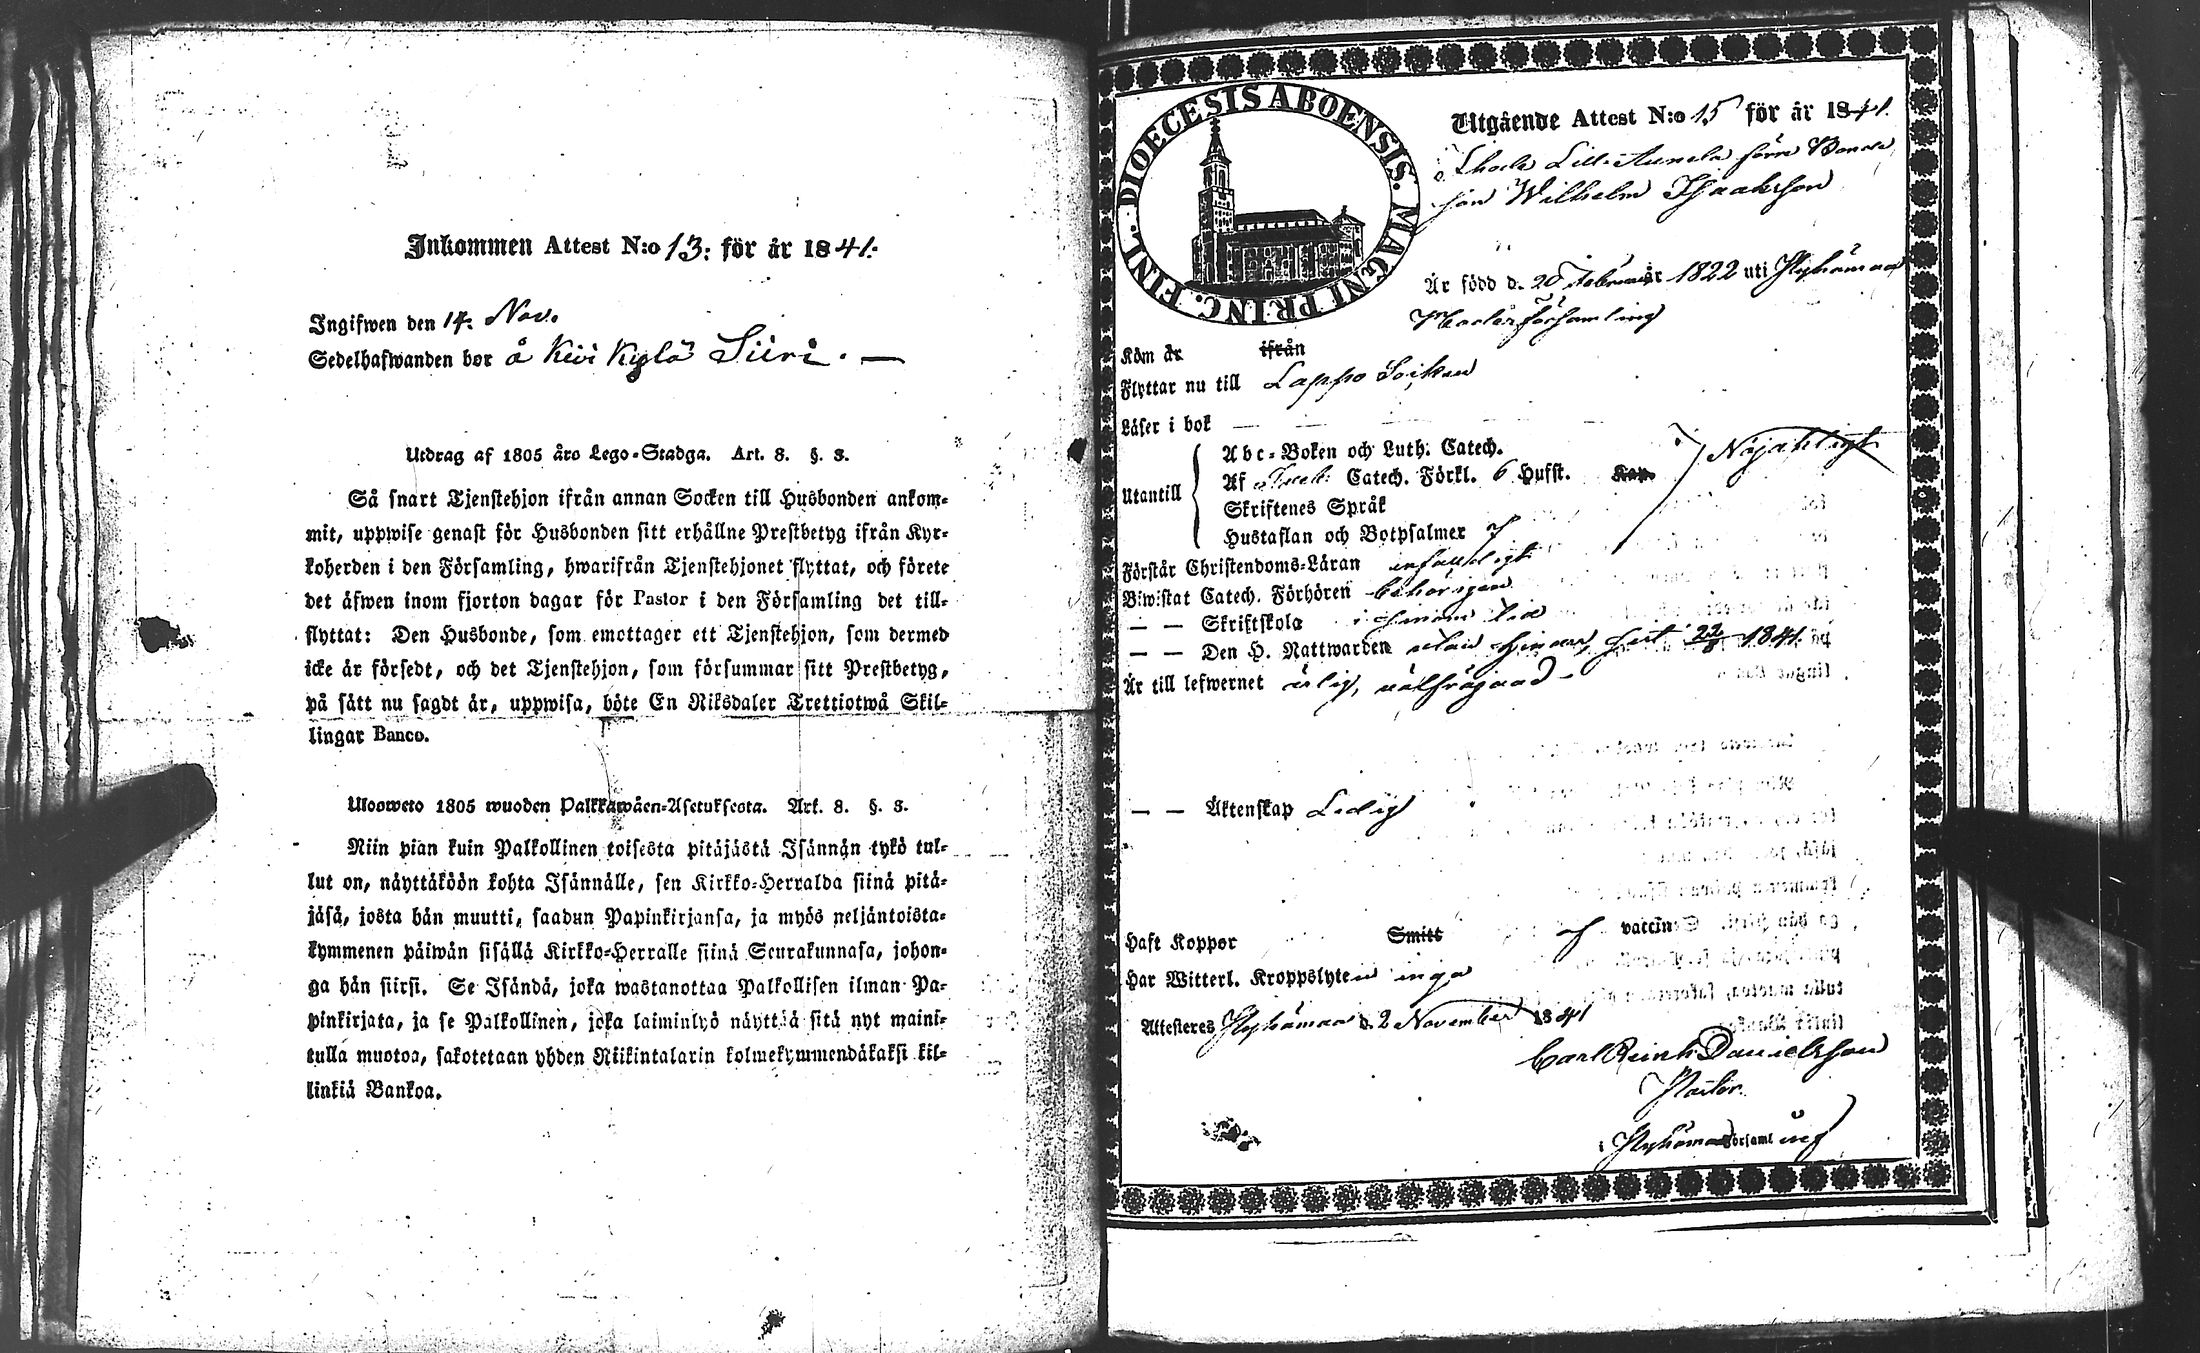 Inkommen Attest N:o 13: för år 1841.
Ingifwen den 14: Nov.
Sedelhafwanden bor å Kivi Kylä Siiri. —
Utdrag af 1805 års Lego-Stadga. Art. 8. §. 3.
Så snart Tjenstehjon ifrån annan Socken till Husbonden ankom-
mit, uppwise genast för Husbonden sitt erhållne Prestbetyg ifrån Kyr-
koherden i den Församling, hwarifrån Tjenstehjonet flyttat, och förete
det äfwen inom fjorton dagar för Pastor i den Församling det till-
flyttat: Den Husbonde, som emottager ett Tjenstehjon, som dermed
icke är försedt, och det Tjenstehjon, som försummar sitt Prestbetyg,
på sätt nu sagdt är, uppwisa, böte En Riksdaler Trettiotwå Skil-
lingar Banco.
Ulosweto 1805 wuoden Palkkawäen-Asetuksesta. Art. 8. §. 3.
Niin pian kuin Palkollinen toisesta pitäjästä Isännän tykö tul-
lut on, näyttäköön kohta Isännälle, sen Kirkko-Herralda siinä pitä-
jäsä, josta hän muutti, saadun Papinkirjansa, ja myös neljäntoista-
kymmenen päiwän sisällä Kirkko-Herralle siinä Seurakunnasa, johon-
ga hän siirsi. Se Isändä, joka wastanottaa Palkollisen ilman Pa-
pinkirjata, ja se Palkollinen, joka laiminlyö näyttää sitä nyt maini-
tulla muotoa, sakotetaan yhden Riikintalarin kolmekymmendäkaksi kil-
linkiä Bankoa.
DIOECESIS ABOENSIS. MAGNI PRINC. FINL.
Utgående Attest N:o 15 för år 1841.
Lill Aunela Bonde
son Wilhelm Isaaksson
Är född d. 20 Februari är 1822 uti Hyhämaa
Moderförsamling
Kom år ifrån
Flyttar nu till Lappo Socken
Läser i bok — — — —
Utantill
Abc-Boken och Luth. Catech.
Af Catech. Förkl. 6 Hufst. Kap.
Skriftenes Språk
Hustaflan och Botpsalmer
Nöjaktigt
Förstår Christendoms-Läran enfaldigt
Biwistat Catech. Förhören behörigen
— — Skriftskola i sinom tid
— — Den H. Nattwarden utan hinder, sist 22/8 1841.
Är till lefwernet ärlig, välfräjdad
— — Äktenskap Ledig
Haft Koppor Smitt vaccin
Har Witterl. Kroppslyten inga
Attesteres Hyhämaa d. 2 November 1841
Carl Reinh Danielsson
Pastor.
Hyhämaa Församling